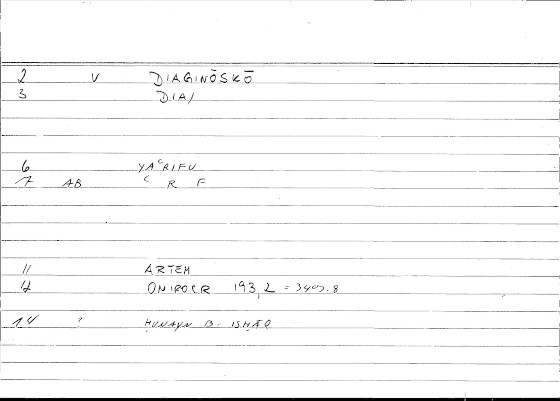 2 V DIAGINŌSKŌ
3 DIA/
6 YAʿRIFU
7 AB ʿ R F
11 ARTEM
12 ONIROCR 193,2 = 3409.8
14 ? ḤUNAYN B. ISḤĀQ